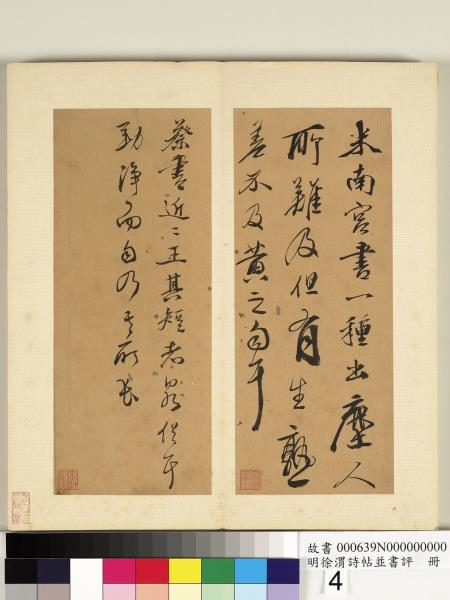 米南宮書一種出塵人
所難及但有生熟
差不及黃之匀耳
蔡書近二王其短者畧俗耳
勁淨而匀乃其所長
故書 000639N000000000
明徐渭詩帖並書評 冊
4